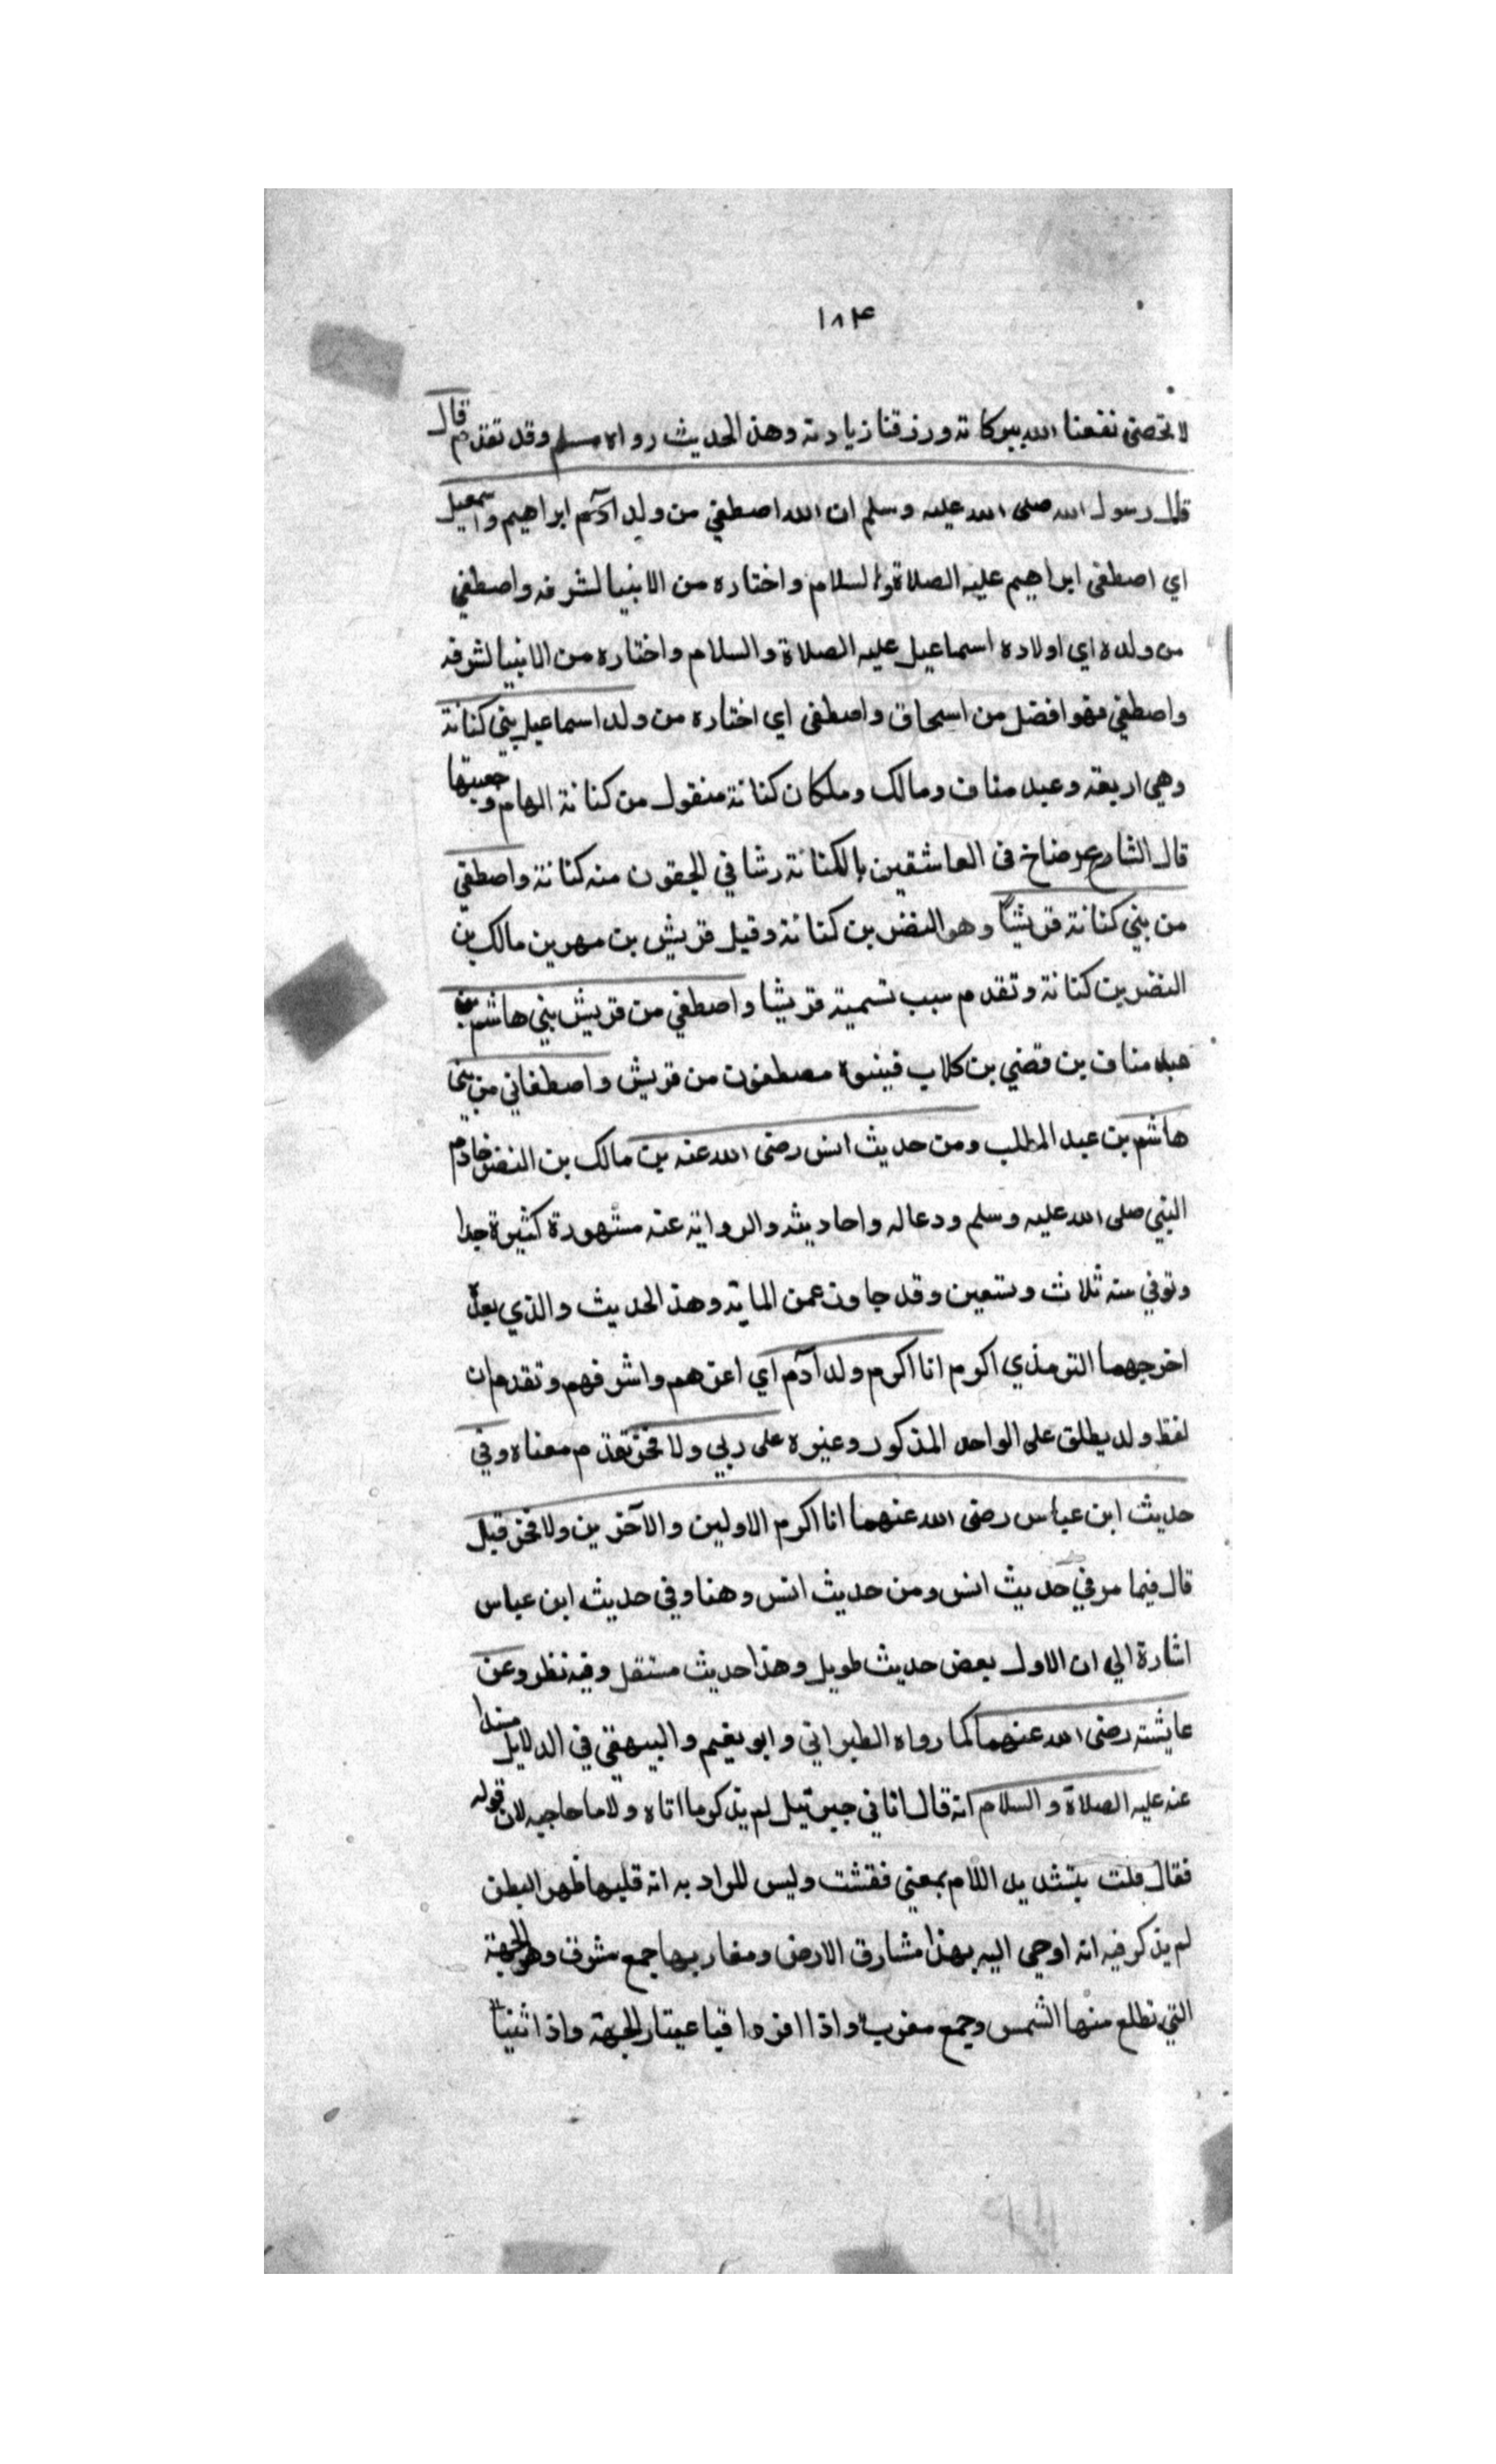 ١٨٤
لا تحصى نفعنا الله ببركاته ورزقنا زيادته وهذا الحديث رواه مسلم وقد تقدم قال
قال رسول الله صلى الله عليه وسلم ان الله اصطفي من ولد ادم ابراهيم واسمعيل
اي اصطفى ابراهيم عليه الصلاة والسلام واختاره من الانبيا لشرفه واصطفي
من ولده اي اولاده اسماعيل عليه الصلاة والسلام واختاره من الانبيا لشرفه
واصطفي فهو افضل من اسحاق واصطفى اي اختاره من ولد اسماعيل بني كنانة
وهي اربعة وعبد مناف ومالك وملكان كنانة منقول من كنانة السهام وجعبتها
قال الشارح في العاشقين بالكنانة رشا في الجفون منه كنانة واصطفي
من بني كنانة قريشاً وهو النضر بن كنانة وقيل قريش بن فهر بن مالك بن
النضر بن كنانة وتقدم سبب تسمية قريشا واصطفي من قريش بني هاشم بن
عبد مناف بن قضي بن كلاب فبنوه مصطفون من قريش واصطفاني من بني
هاشم بن عبد المطلب ومن حديث انس رضى الله عنه بن مالك بن النضر خادم
النبي صلى الله عليه وسلم ودعاله واحاديثه والرواية عنه مشهورة كثيرة جدا
وتوفي سنة ثلاث وتسعين وقد جاوز عمن الماية وهذا الحديث والذي بعده
اخرجهما الترمذي اكرم انا اكرم ولد آدم اي اعزهم واشرفهم وتقدم ان
لفظ ولد يطلق على الواحد المذكور وغيره على ربي ولا فخر تقدم معناه وفي
حديث ابن عباس رضى الله عنهما انا اكرم الاولين والآخرين ولا فخر قيل
قال فيما مر في حديث انس ومن حديث انس وهنا وفي حديث ابن عباس
اشارة الي ان الاول بعض حديث طويل وهذا حديث مستقل وفيه نظر وعن
عايشة رضى الله عنهما كما رواه الطبراني وابو نعيم والبيهقي في الدلايل مسندا
عنه عليه الصلاة والسلام انه قال اتاني جبرئيل لم يذكر ما اتاه ولا ما حاجيه لان قوله
فقال قلبت بتشديد اللام بمعني فقشت وليس للمراد به انه قلبها ظهر البطن
لم يذكر فيه انه اوحى اليه بهذا مشارق الارض ومغاربها جمع مشرق وهو الجهة
التي تطلع منها الشمس وجمع مغرب واذا افردا فباعتبار الجهة واذا ثنياً